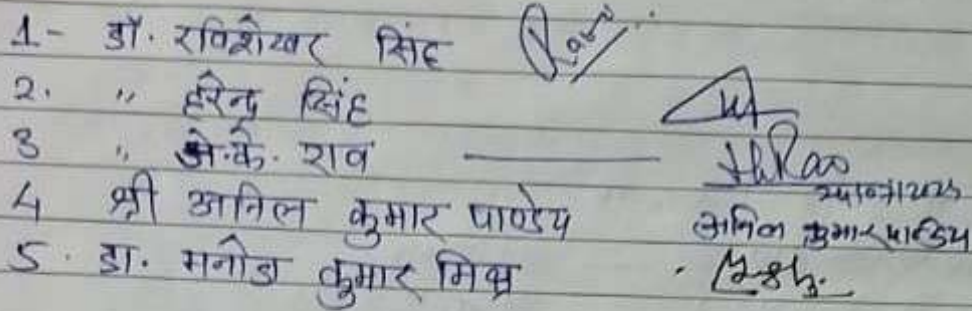 1- डॉ. रविशेखर सिंह Ravi
2. " हरेन्द्र सिंह
3 " जे.के. राव Rao
4 श्री अनिल कुमार पाण्डेय अनिल कुमार पाण्डेय
5. डा. मनोज कुमार मिश्र